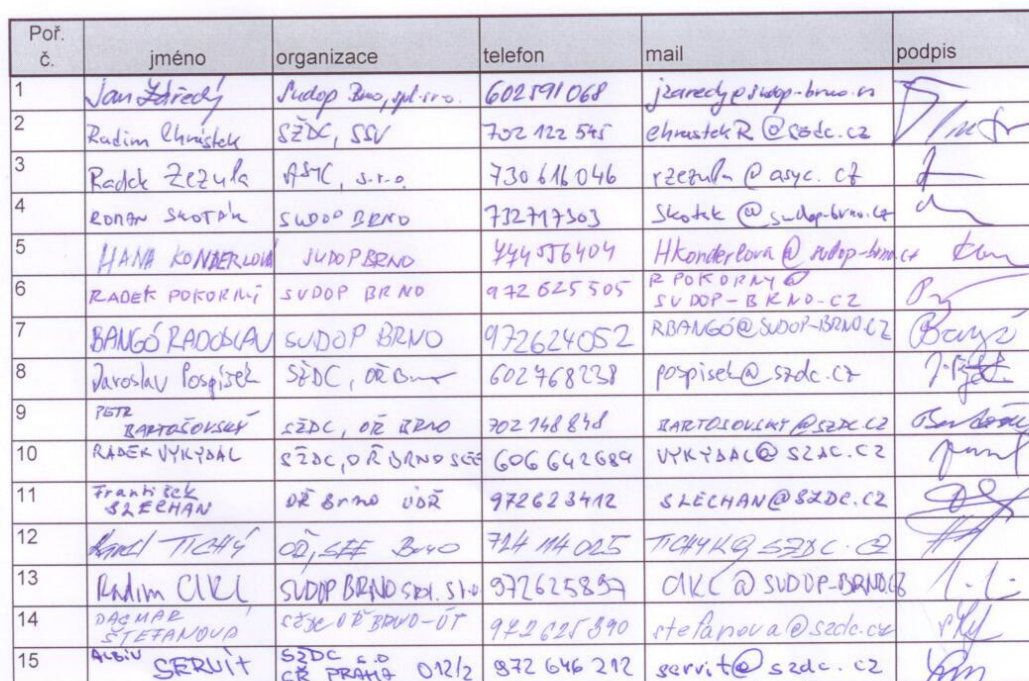 Poř. č. jméno organizace telefon mail podpis
1 Jan Zářecký Sudop Brno, spol. s r.o. 602591068 jzarecky@sudop-brno.cz
2 Radim Chrástek SŽDC, SSV 702 122 545 chrastekR@szdc.cz
3 Radek Zezula ASYC, s.r.o. 730 616 046 rzezula@asyc.cz
4 ROMAN SKOTÁK SUDOP BRNO 732717303 Skotak@sudop-brno.cz
5 HANA KONDERLOVÁ SUDOP BRNO 774556404 HKonderlova@sudop-brno.cz
6 RADEK POKORNÝ SUDOP BRNO 972 625 505 RPOKORNY@
SUDOP-BRNO.CZ
7 BANGÓ RADOSLAV SUDOP BRNO 972624052 RBANGÓ@SUDOP-BRNO.CZ
8 Jaroslav Pospíšek SŽDC, OŘ Brno 602768238 pospisek@szdc.cz
9 PETR
BARTOŠOVSKÝ SŽDC, OŘ BRNO 702 148 848 BARTOSOVSKY@SZDC.CZ
10 RADEK VYKYDAL SŽDC, OŘ BRNO SEE 606 642 689 VYKYDAL@SZDC.CZ
11 František
SLECHAN OŘ Brno ÚDŘ 972623412 SLECHAN@SZDC.CZ
12 Karel TICHÝ OŘ, SEE Brno 724 114 025 TICHYK@SZDC.CZ
13 Radim CIKL SUDOP BRNO spol. s r.o 972625897 CIKL@SUDOP-BRNO.CZ
14 DAGMAR
ŠTEFANOVÁ SŽDC OŘ BRNO-ÚT 972 625 390 stefanova@szdc.cz
15 ALBIN
SERVÍT SŽDC s.o
CŘ PRAHA 012/2 972 646 212 servit@szdc.cz